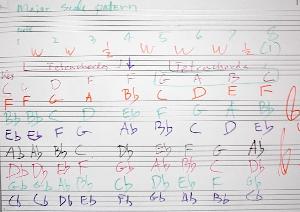 Major Scale pattern
1 2 3 4 5 6 7 8
W W ½ W W W ½ (1)
Tetrachords Tetrachords
C D E F G A B C
F F G A Bb C D E F
Bb Bb C D Eb F G A Bb
Eb Eb F G Ab Bb C D Eb
Ab Ab Bb C Db Eb F G Ab
Db Db Eb F Gb Ab Bb C Db
Gb Gb Ab Bb Cb Db Eb F Gb
Cb Cb Db Eb Fb Gb Ab Bb Cb